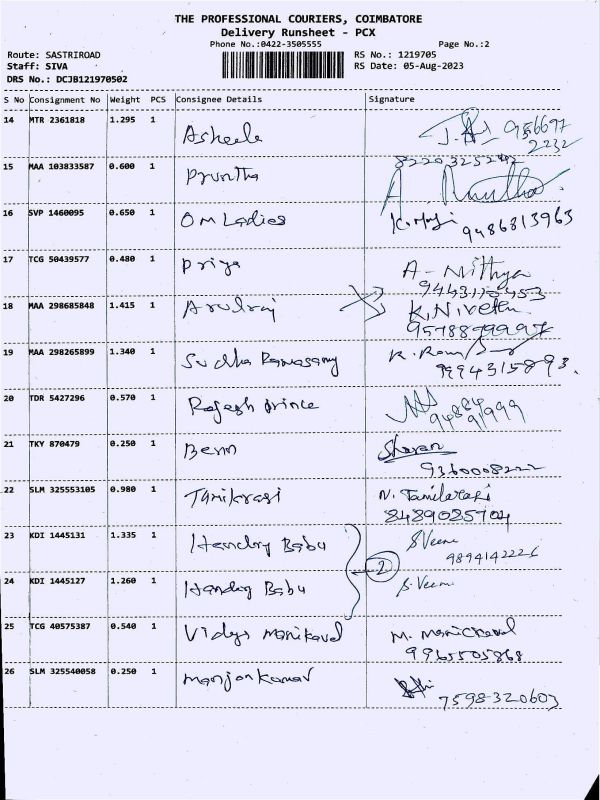 THE PROFESSIONAL COURIERS, COIMBATORE
Delivery Runsheet - PCX
Phone No.:0422-3505555 Page No.:2
Route: SASTRIROAD RS No.: 1219705
Staff: SIVA RS Date: 05-Aug-2023
DRS No.: DCJB121970502
S No Consignment No Weight PCS Consignee Details Signature
14 MTR 2361818 1.295 1 Asheela 956697
2232
8220325292
15 MAA 103833587 0.600 1 Pruntha A.
16 SVP 1460095 0.650 1 OM Ladies
9486813963
17 TCG 50439577 0.480 1 Priya A - Nithya
18 MAA 298685848 1.415 1 Arulraj K. Nivetha
19 MAA 298265899 1.340 1 Sudha Ramasamy
9994315893.
20 TDR 5427296 0.570 1 Rajesh prince
21 TKY 870479 0.250 1 Sharan
9360008222
22 SLM 325553105 0.980 1 Tamilarasi N. Tamilarasi
8489085704
23 KDI 1445131 1.335 1 Handry Babu S Veena
9894142226
2
24 KDI 1445127 1.260 1 Handry Babu S. Veena
25 TCG 40575387 0.540 1 Vidya Manikavel M. Manickavel
9965505868
26 SLM 325540058 0.250 1 Manjonkumar
7598320603